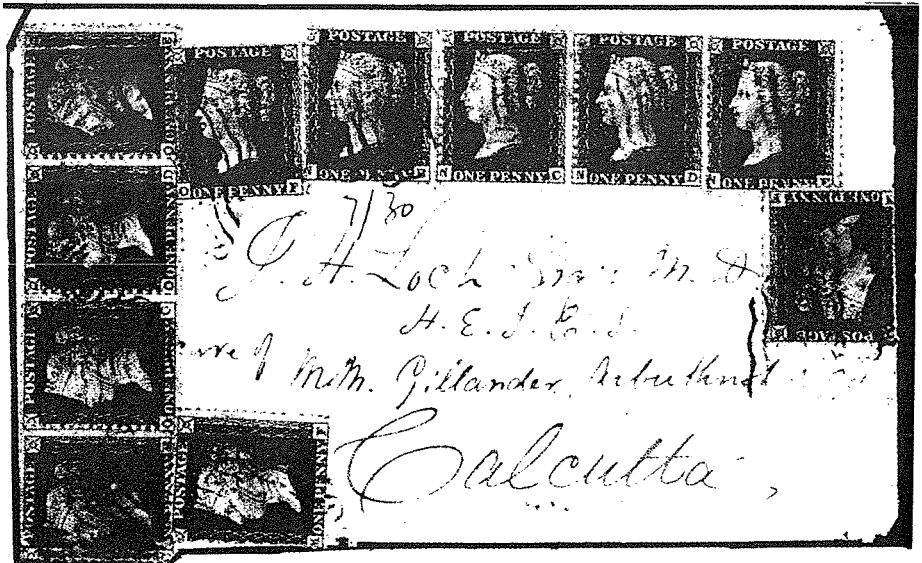 POSTAGE POSTAGE POSTAGE POSTAGE POSTAGE
ONE PENNY ONE PENNY ONE PENNY ONE PENNY ONE PENNY
POSTAGE ONE PENNY
POSTAGE ONE PENNY
POSTAGE ONE PENNY
POSTAGE ONE PENNY
POSTAGE ONE PENNY
POSTAGE ONE PENNY
7/30
J. H. Loch Esq: M. D.
H. E. I. C. S.
care of
Gillander, Arbuthnot & Co
Calcutta,